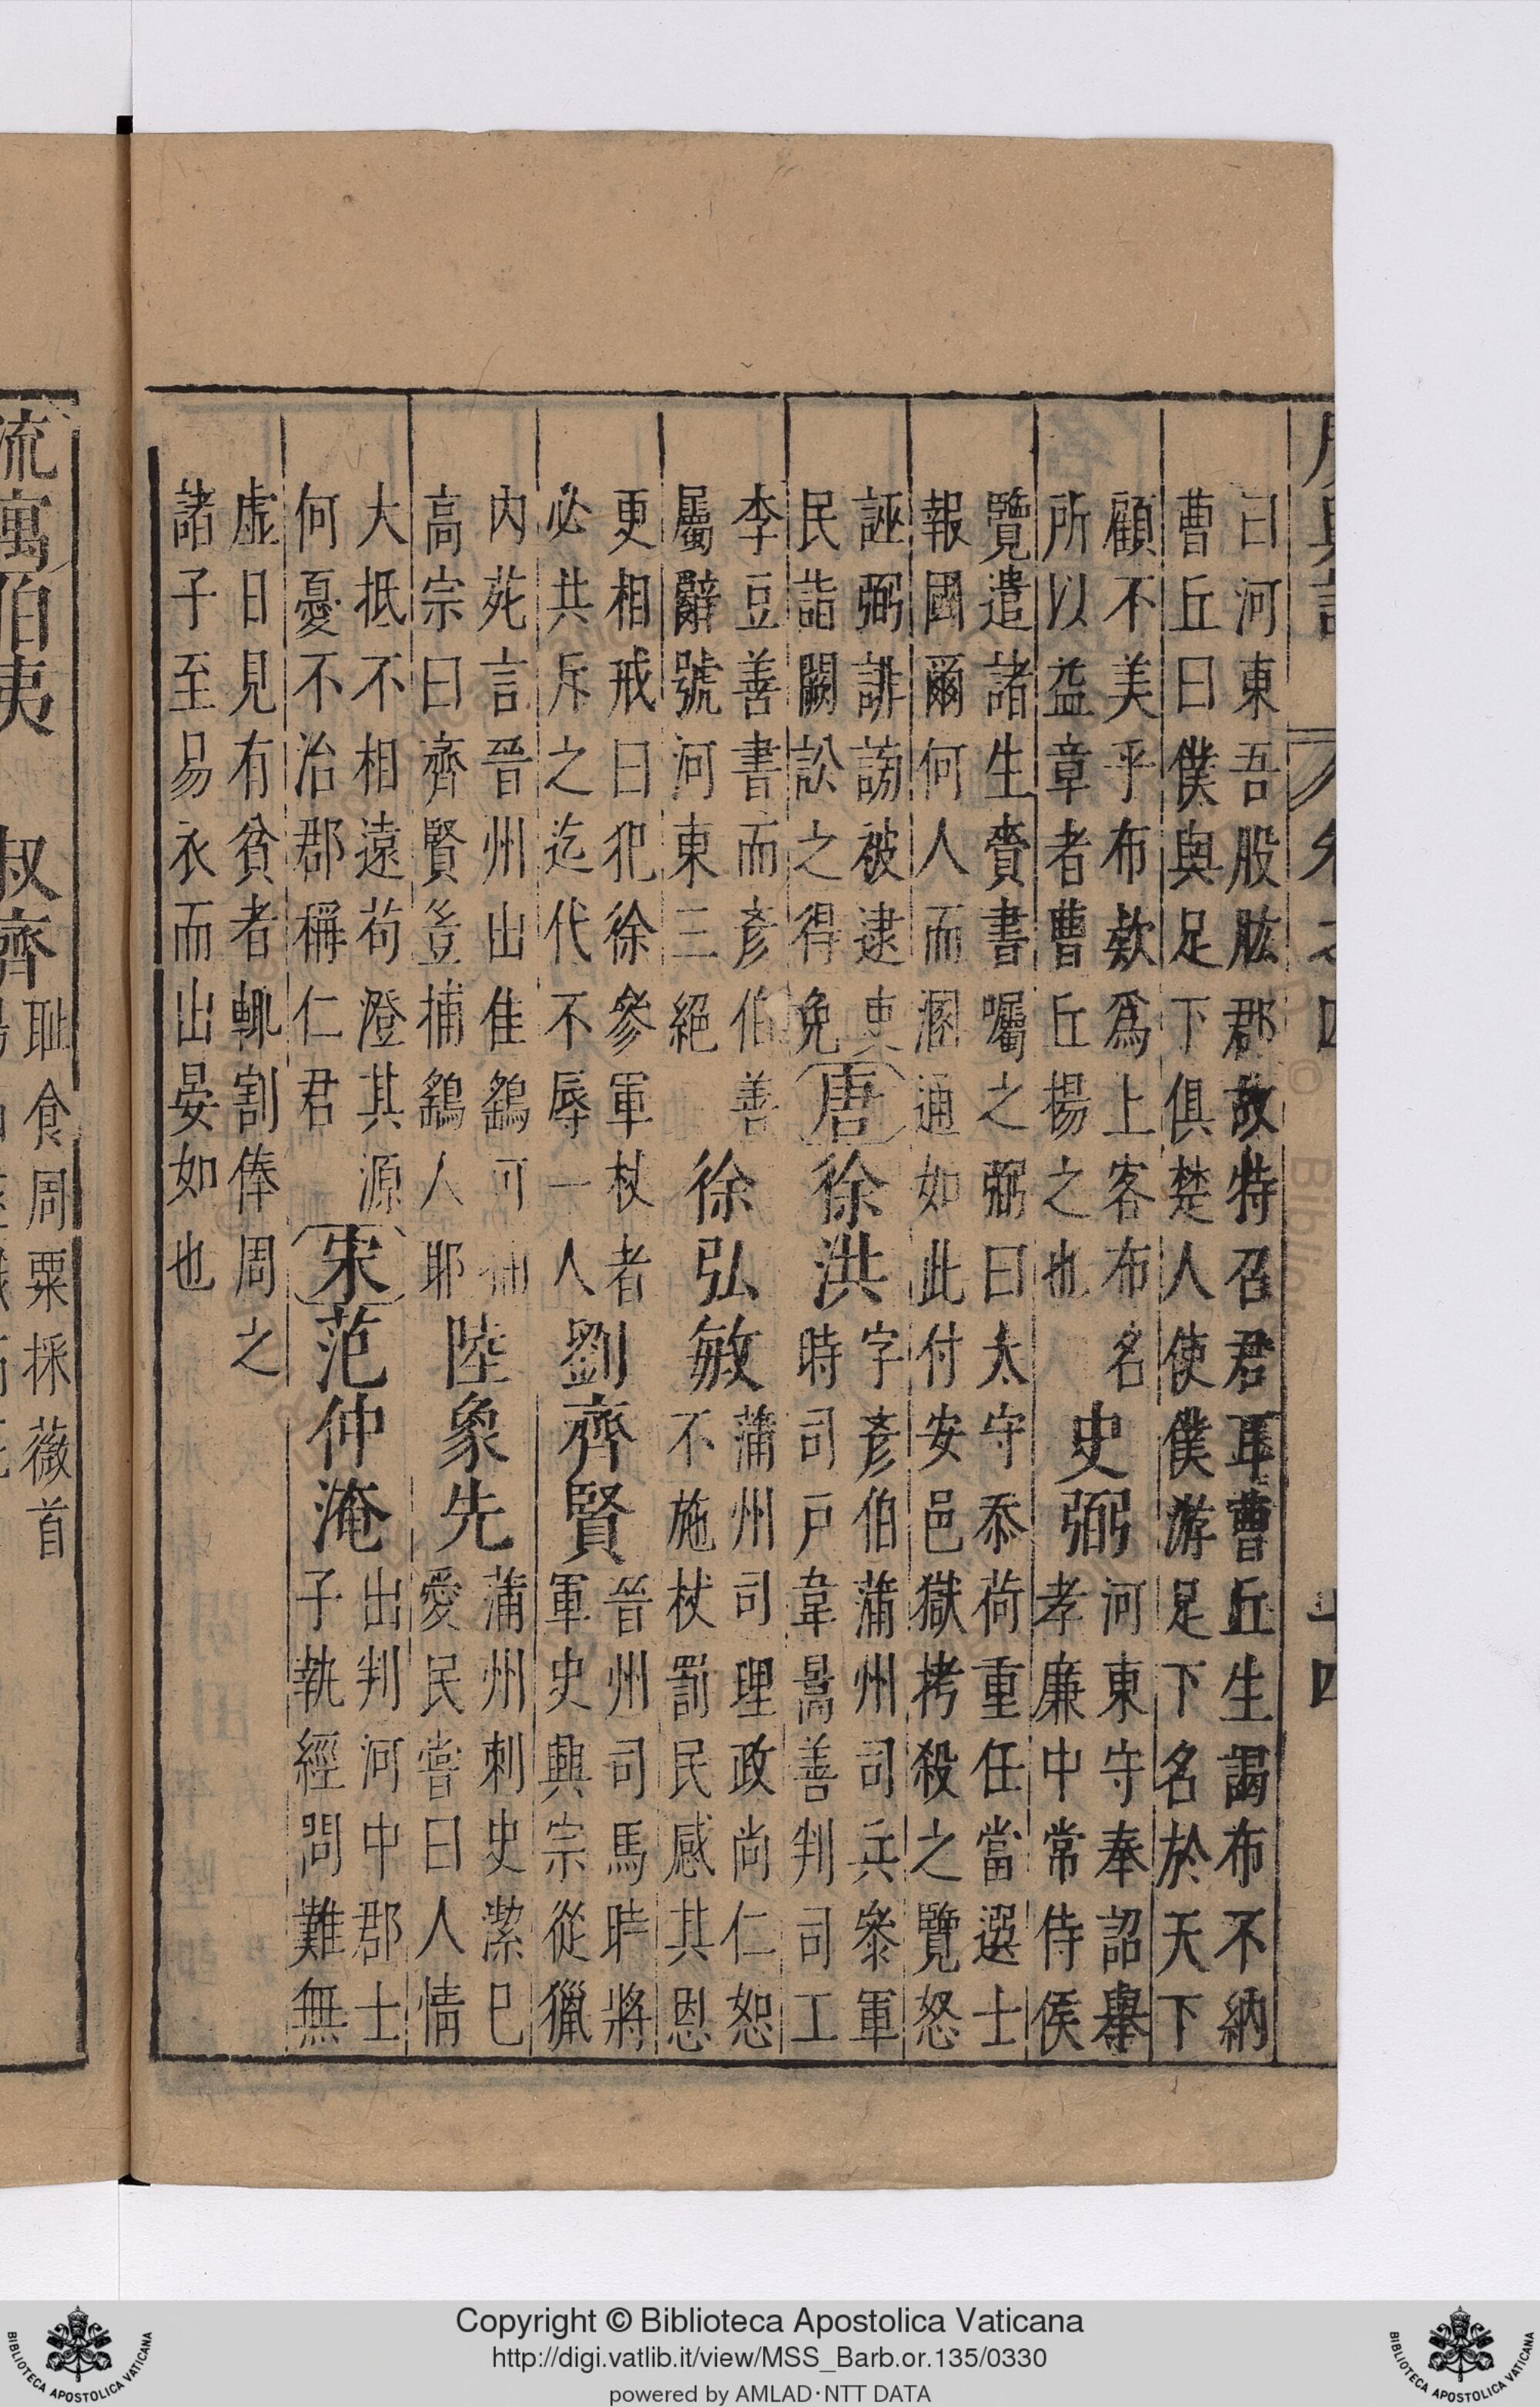 曰河東吾股肱郡故特召君耳曹丘生謁布不納
曹丘曰僕與足下俱楚人使僕游足下名於天下
顧不美乎布歎爲上客布名
所以益章者曹丘揚之也
史弼
河東守奉詔舉
孝廉中常侍侯
覽遣諸生賫書囑之弼曰太守忝荷重任當選士
報國爾何人而溷通如此付安邑獄拷殺之覽怒
誣弼誹謗被逮吏
民詣闕訟之得免
唐
徐洪
字彥伯蒲州司兵叅軍
時司戶韋暠善判司工
李豆善書而彥伯善
屬辭號河東三絕
徐弘敏
蒲州司理政尚仁恕
不施杖罰民感其恩
更相戒曰犯徐參軍杖者
必共斥之迄代不辱一人
劉齊賢
晉州司馬時將
軍史興宗從獵
內苑言晉州出隹鷂可捕
高宗曰齊賢豈捕鷂人耶
陸象先
蒲州刺史潔已
愛民嘗曰人情
大抵不相遠苟澄其源
何憂不治郡稱仁君
宋
范仲淹
出判河中郡士
子執經問難無
虛日見有貧者輒割俸周之
諸子至易衣而出晏如也
卷之四
十四
流寓
伯夷
叔齊
耻食周粟採薇首
Copyright © Biblioteca Apostolica Vaticana
http://digi.vatlib.it/view/MSS_Barb.or.135/0330
powered by AMLAD·NTT DATA
BIBLIOTECA APOSTOLICA VATICANA
BIBLIOTECA APOSTOLICA VATICANA